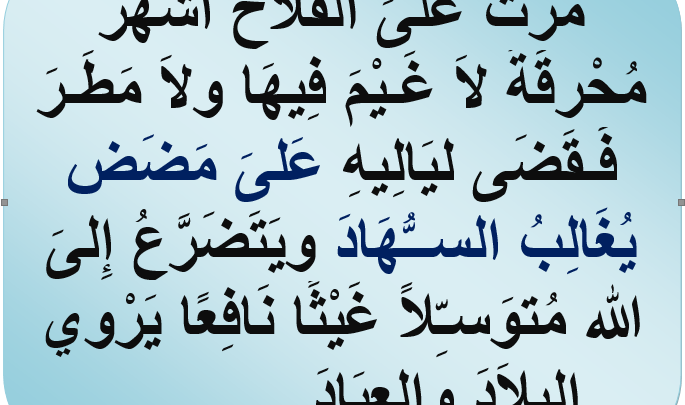 مرت عَلىَ الفلاح أشهر
مُحْرقَة لاَ غَيْمَ فِيهَا ولاَ مَطَرَ
فَقَضَى ليَالِيهِ عَلىَ مَضَض
يُغَالِبُ السـُّهَادَ ويَتَضَرَّعُ إِلىَ
الله مُتوَسـِّلاً غَيْثًا نَافِعًا يَرْوي
البلاَدَ والعبَادَ